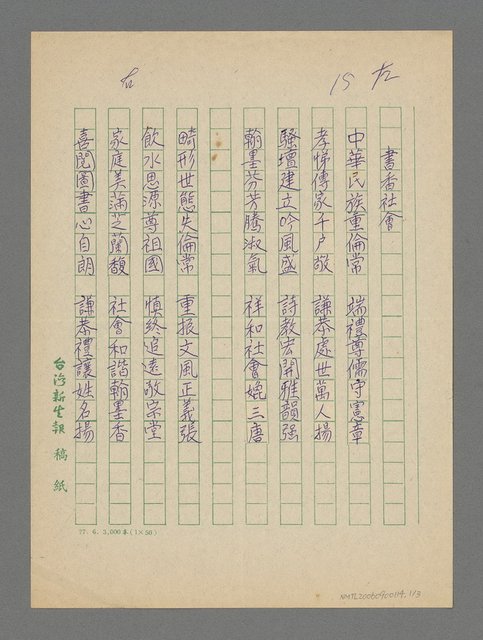 15 左
右
書香社會
中華民族重倫常 端禮尊儒守憲章
孝悌傳家千戶敬 謙恭處世萬人揚
騷壇建立吟風盛 詩教宏開雅韻强
翰墨芬芳騰淑氣 祥和社會媲三唐
畸形世態失倫常 重振文風正義張
飲水思源尊祖國 慎終追遠敬宗堂
家庭美滿芝蘭馥 社會和諧翰墨香
喜閱圖書心自朗 謙恭禮讓姓名揚
台灣新生報 稿紙
77. 6. 3,000本(1×50)
NMTL20060900114. 1/3